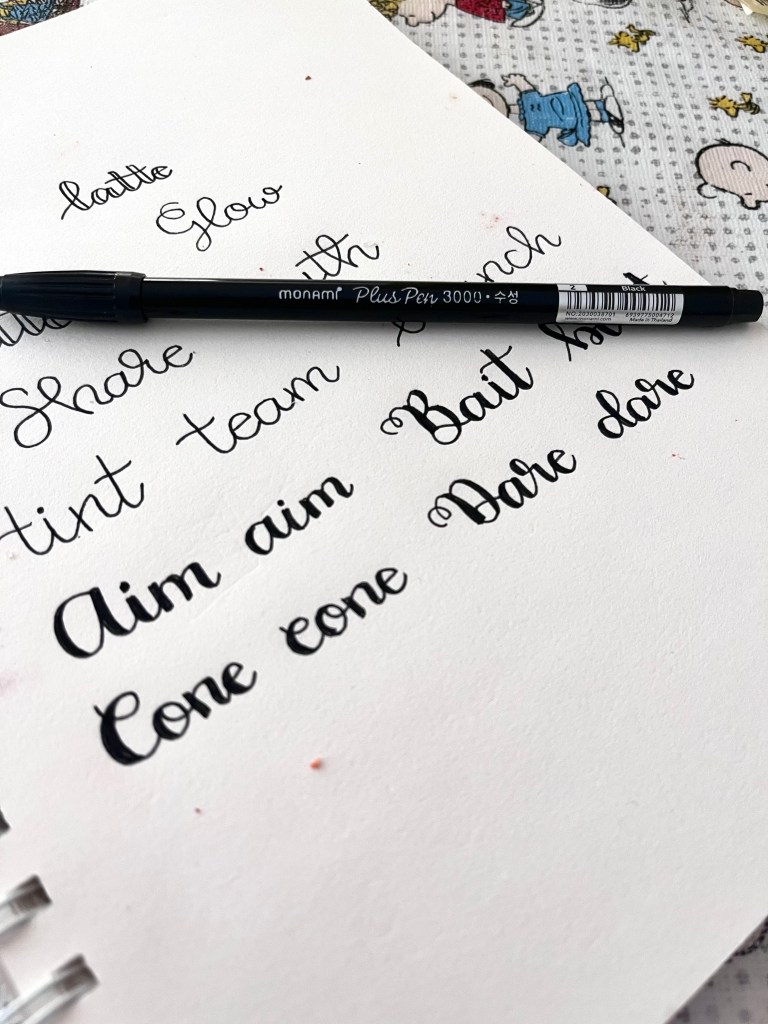 latte
Glow
monami Plus Pen 3000 • 수성
2 Black
NO.2030038701 6939775004712
www.monami.com Made in Thailand
Share
tint team
Bait
Aim aim
Dare dare
Cone cone